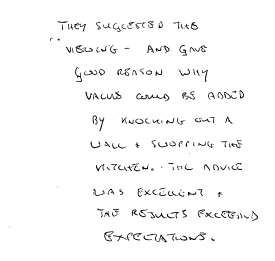 THEY SUGGESTED THIS
VIEWING - AND GAVE
GOOD REASON WHY
VALUE COULD BE ADDED
BY KNOCKING OUT A
WALL + SWOPPING THE
KITCHEN. THE ADVICE
WAS EXCELLENT +
THE RESULTS EXCEEDED
EXPECTATIONS.